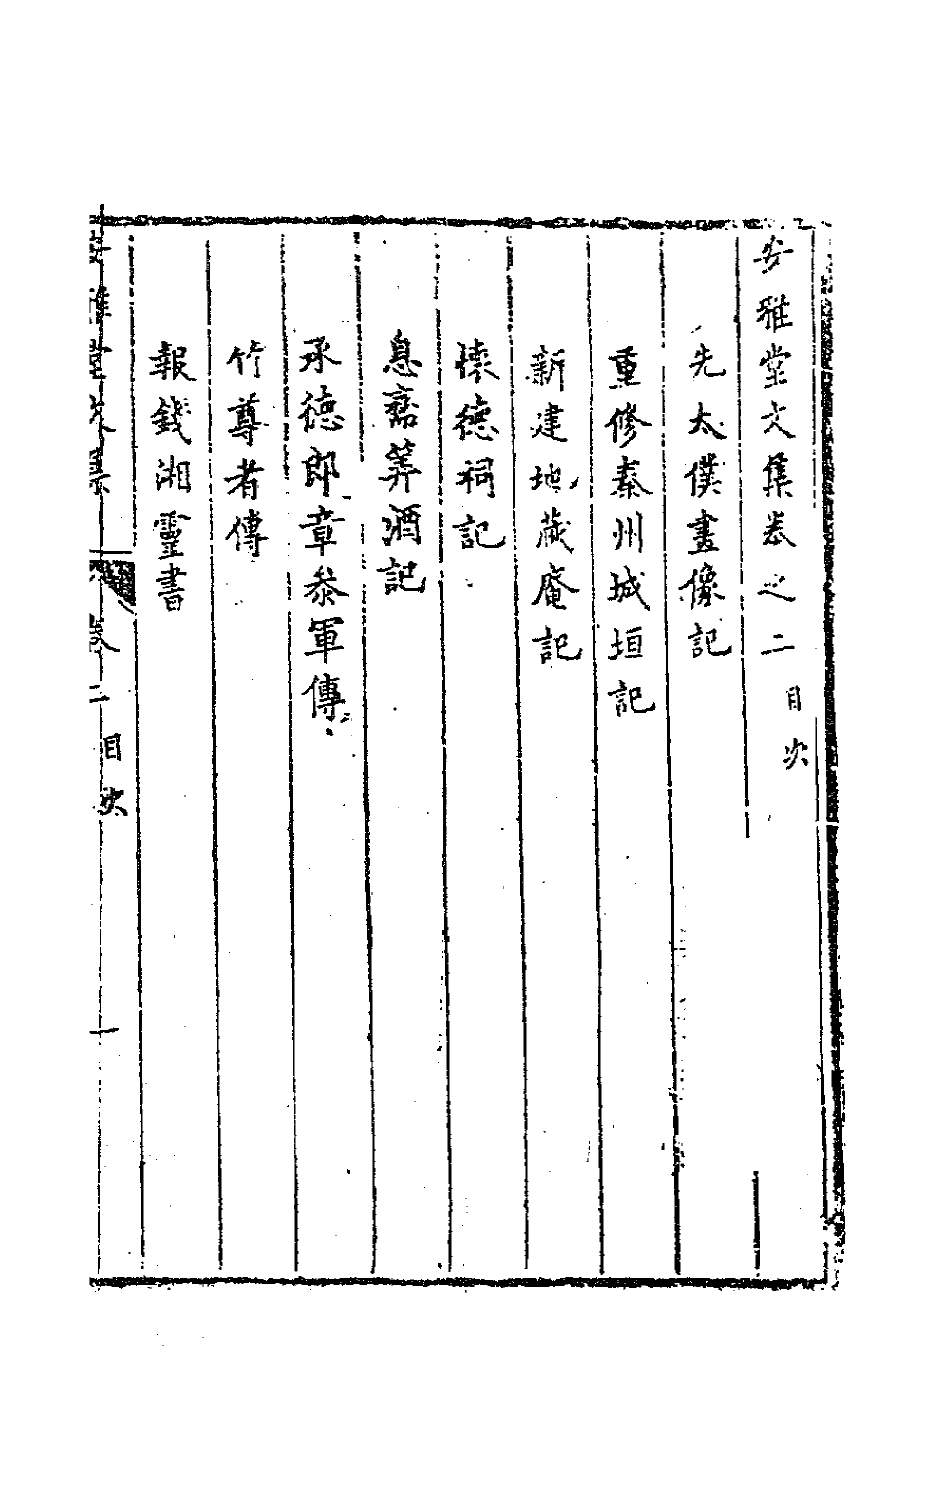 安雅堂文集卷之二目次
先太僕畫像記
重修秦州城垣記
新建地藏庵記
懷德祠記
息齋筭酒記
承德郎章叅軍傳
竹尊者傳
報錢湘靈書
安雅堂文集 卷二目次 一